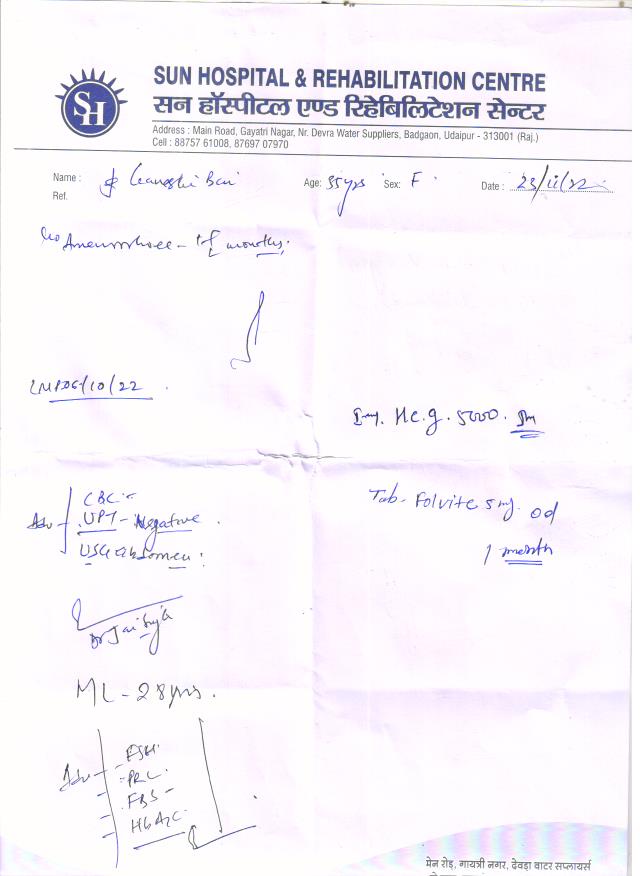 SH
SUN HOSPITAL & REHABILITATION CENTRE
सन हॉस्पीटल एण्ड रिहेबिलिटेशन सेन्टर
Address : Main Road, Gayatri Nagar, Nr. Devra Water Suppliers, Badgaon, Udaipur - 313001 (Raj.)
Cell : 88757 61008, 87697 07970
Name : Bai Age: 55yrs Sex: F Date : 23/11/22
Ref.
months.
LMP 06/10/22
Inj. Hcg. 5000.
CBC
Adv UPT - Negative
USG abdomen
Tab- Folvite 5mg. od
1 month
Dr
ML - 28yrs.
Adv - FSH
PRL
FBS
मेन रोड़, गायत्री नगर, देवड़ा वाटर सप्लायर्स